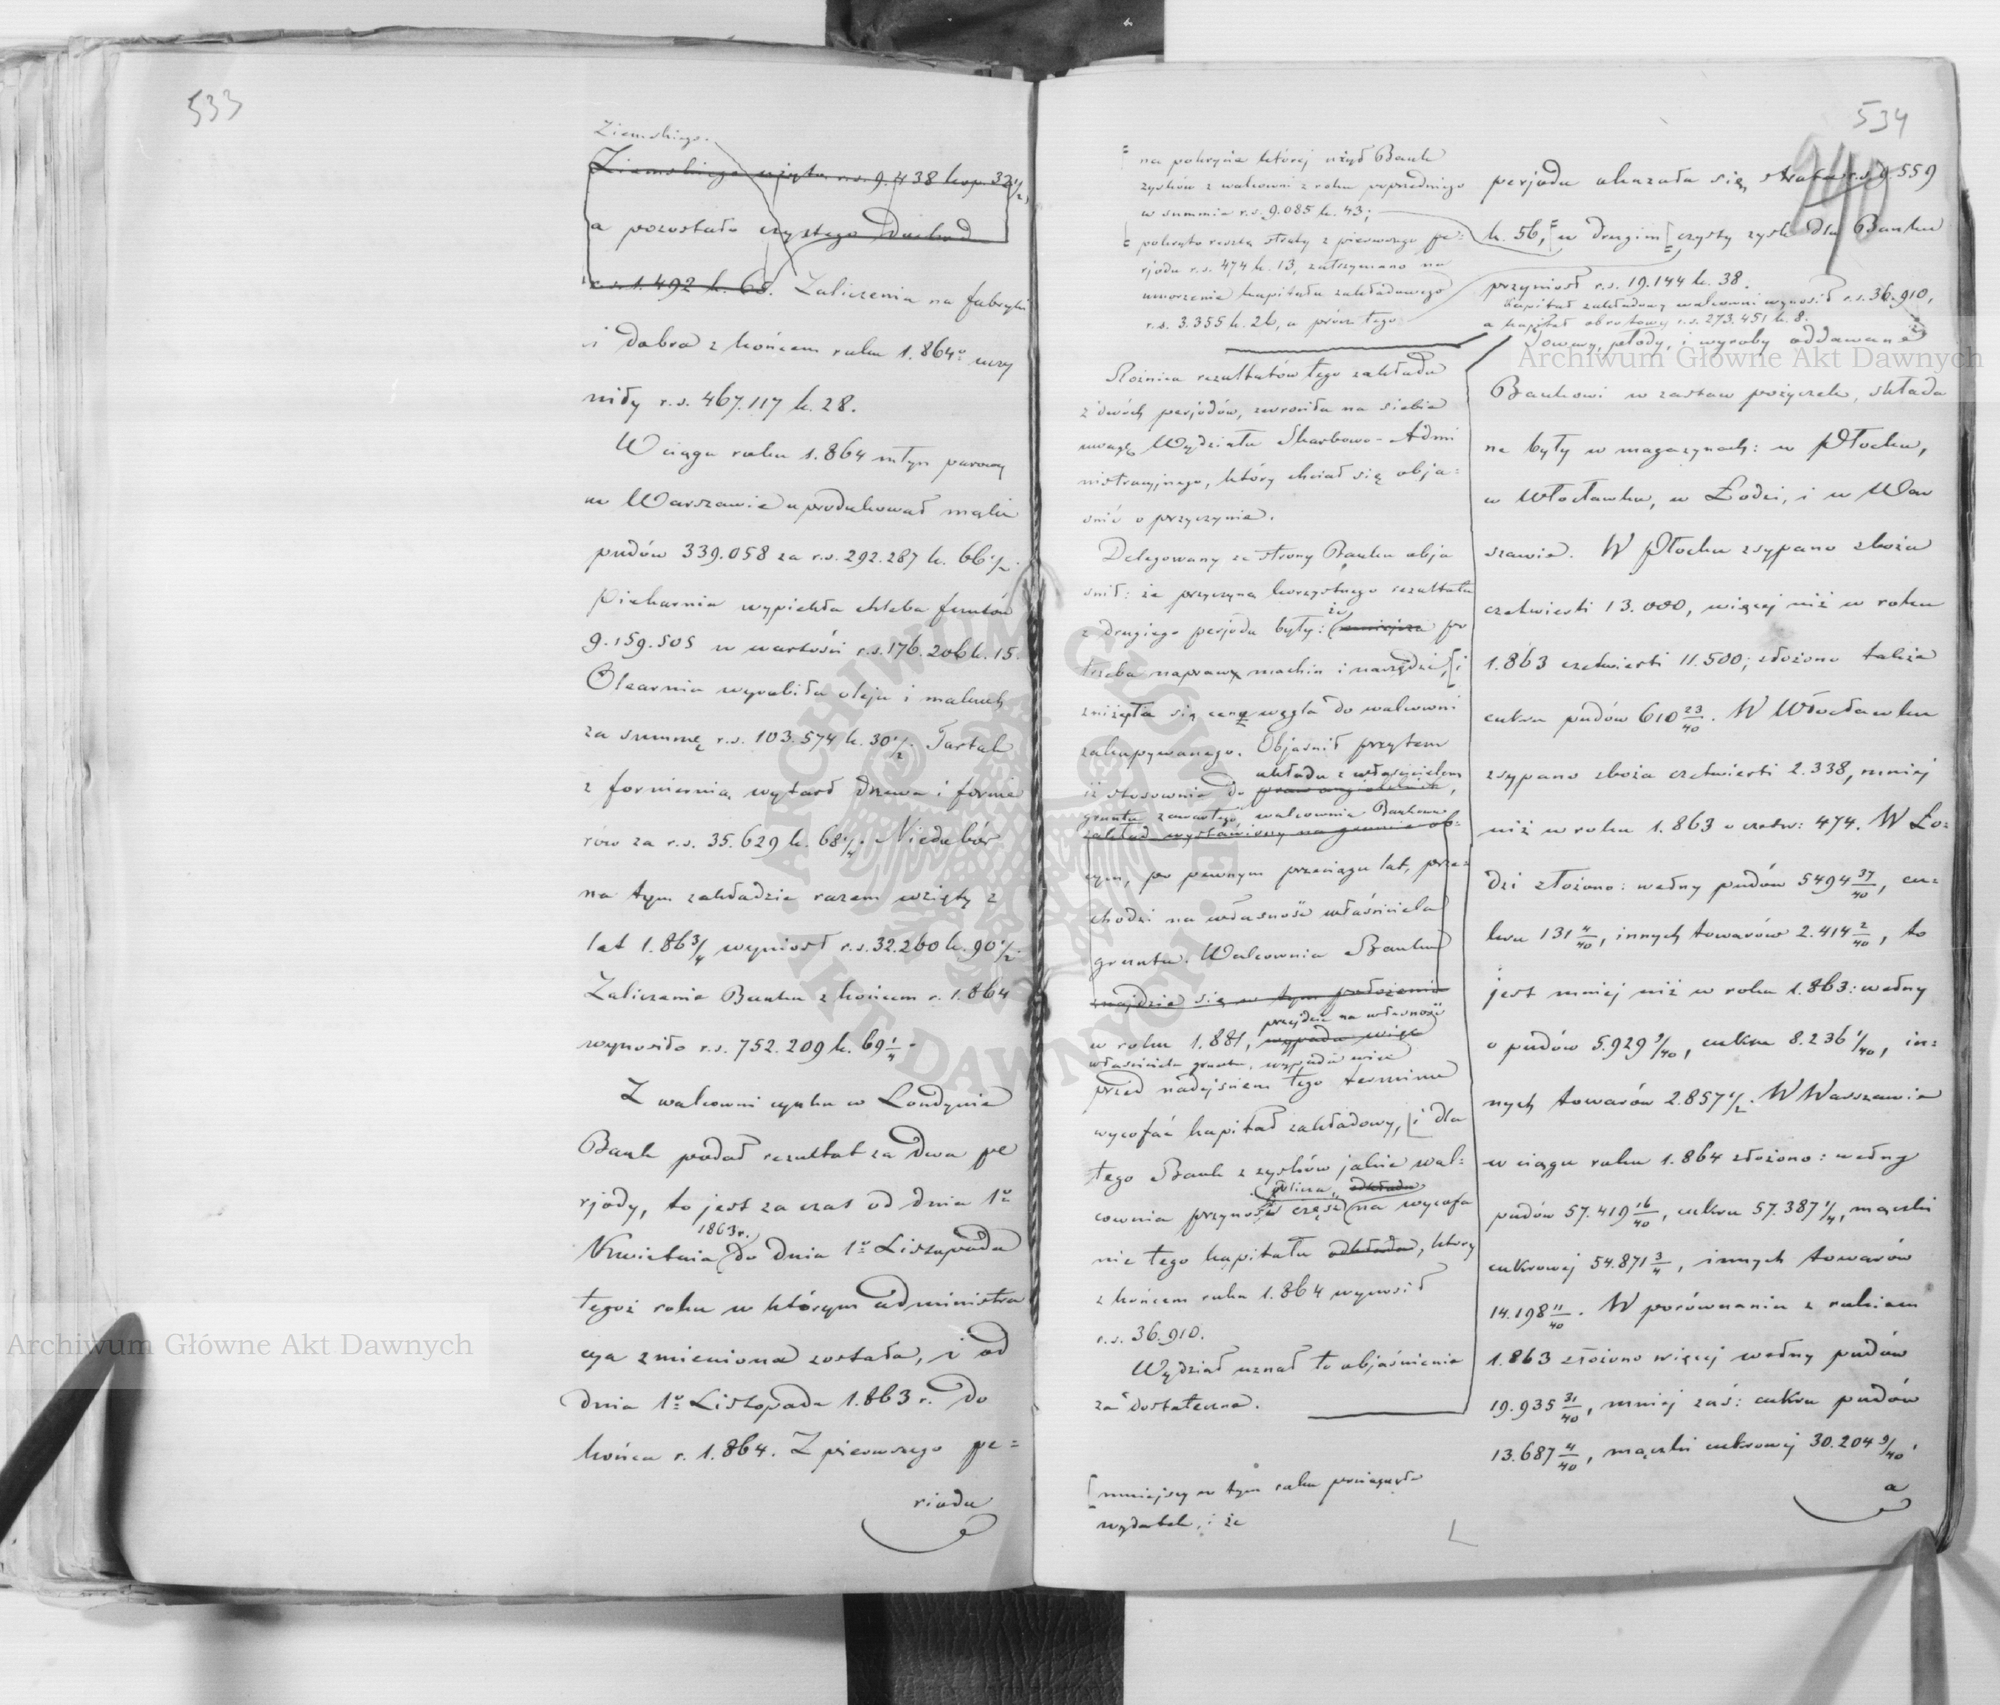 533
Ziemskiego.
Ziemskiego użyto r.s. 9.438 kop. 32 1/2,
a pozostało czystego dochod
r.s. 1.492 k. 68. Zaliczenia na fabryki
i dobra z końcem roku 1.864º uczy
niły r.s. 467.117 k. 28.
W ciągu roku 1.864 młyn parowy
w Warszawie uprodukował mąki
pudów 339.058 za r.s. 292.287 k. 66 1/2.
Piekarnia wypiekła chleba funtów
9.159.505 w wartości r.s. 176.206 k. 15.
Olearnia wyrobiła oleju i makuch
za summę r.s. 103.574 k. 30 1/2. Tartak
z forniernią wytarł drzewa i fornie
rów za r.s. 35.629 k. 68 1/4. Niedobór
na tym zakładzie razem wzięty z
lat 1.863/4 wyniosł r.s. 32.260 k. 90 1/2.
Zaliczenie Banku z końcem r. 1.864
wynosiło r.s. 752.209 k. 69 1/4.
Z walcowni cynku w Londynie
Bank podał rezultat za dwa pe
rjody, to jest za czas od dnia 1º
1863 r.
Kwietnia do dnia 1º Listopada
tegoż roku w którym administra
cya zmieniona została, i od
dnia 1º Listopada 1.863 r. do
końca r. 1.864. Z pierwszego pe=
riodu
534
240
na pokrycie której użył Bank
zysków z walcowni z roku poprzedniego
w summie r.s. 9.085 k. 43;
pokryto resztę straty z pierwszego pe=
rjodu r.s. 474 k. 13, zatrzymano na
umorzenie kapitału zakładowego
r.s. 3.355 k. 26, a prócz tego
Różnica rezultatów tego zakładu
z dwóch perjodów, zwrociła na siebie
uwagę Wydziału Skarbowo-Admi
nistracyjnego, który chciał się obja=
śnić o przyczynie.
Delegowany ze strony Banku obja
śnił: że przyczyną korzystnego rezultatu
że
z drugiego perjodu były: mniejsza po
trzeba naprawy machin i narzędzi, i
zniżyła się cena węgla do walcowni
zakupywanego. Objaśnił przytem
układu z właścicielem
iż stosownie do praw angielskich,
gruntu zawartego walcownia Bankowa
zakład wystawiony na gruncie ob=
cym, po pewnym przeciągu lat, prze=
chodzi na własność właściciela
gruntu. Walcownia Banku
znajdzie się w tym położeniu
przejdzie na własność
w roku 1.881, wypada więc
właściciela gruntu, wypada więc
przed nadejściem tego terminu
wycofać kapitał zakładowy, i dla
tego Bank z zysków jakie wal=
odkłada
cownia przynosi część na wycofa
nie tego kapitału odkłada, który
z końcem roku 1.864 wynosił
r.s. 36.910.
Wydział uznał to objaśnienie
za dostateczne.
mniejszy w tym roku
wydatek, i że
perjodu okazała się strata r.s. 9.559
k. 56, w drugim czysty zysk dla Banku
przyniosł r.s. 19.144 k. 38.
Kapitał zakładowy walcowni wynosił r.s. 36.910,
a kapitał obrotowy r.s. 273.451 k. 8.
Towary, płody, i wyroby oddawane
Bankowi w zastaw pożyczek, składa
ne były w magazynach: w Płocku,
w Włocławku, w Łodzi, i w War
szawie. W Płocku zsypano zboża
czetwierti 13.000, więcej niż w roku
1.863 czetwierti 11.500; złożono także
cukru pudów 610 23/40. W Włocławku
zsypano zboża czetwierti 2.338, mniej
niż w roku 1.863 o czetw: 474. W Ło=
dzi złożono: wełny pudów 5494 37/40, cu=
kru 131 4/40, innych towarów 2.414 2/40, to
jest mniej niż w roku 1.863: wełny
o pudów 5.929 9/40, cukru 8.236 1/40, in=
nych towarów 2.857 1/2. W Warszawie
w ciągu roku 1.864 złożono: wełny
pudów 57.419 16/40, cukru 57.387 1/4, mączki
cukrowej 54.871 3/4, innych towarów
14.198 11/40. W porównaniu z rokiem
1.863 złożono więcej wełny pudów
19.935 31/40, mniej zaś: cukru pudów
13.687 4/40, mączki cukrowej 30.204 9/40,
a
Archiwum Główne Akt Dawnych
Archiwum Główne Akt Dawnych
ARCHIWUM GŁÓWNE AKT DAWNYCH